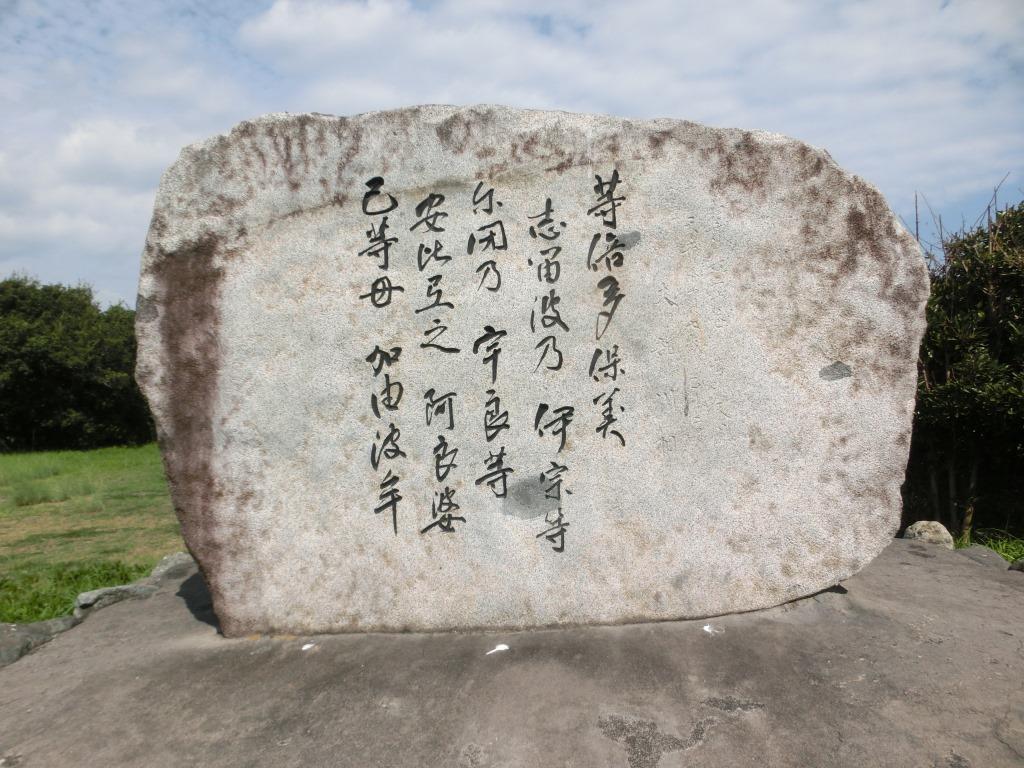 等倍多保美
志留波乃 伊宗等
尓閇乃 宇良等
安比弖之 阿良婆
己等母 加由波牟